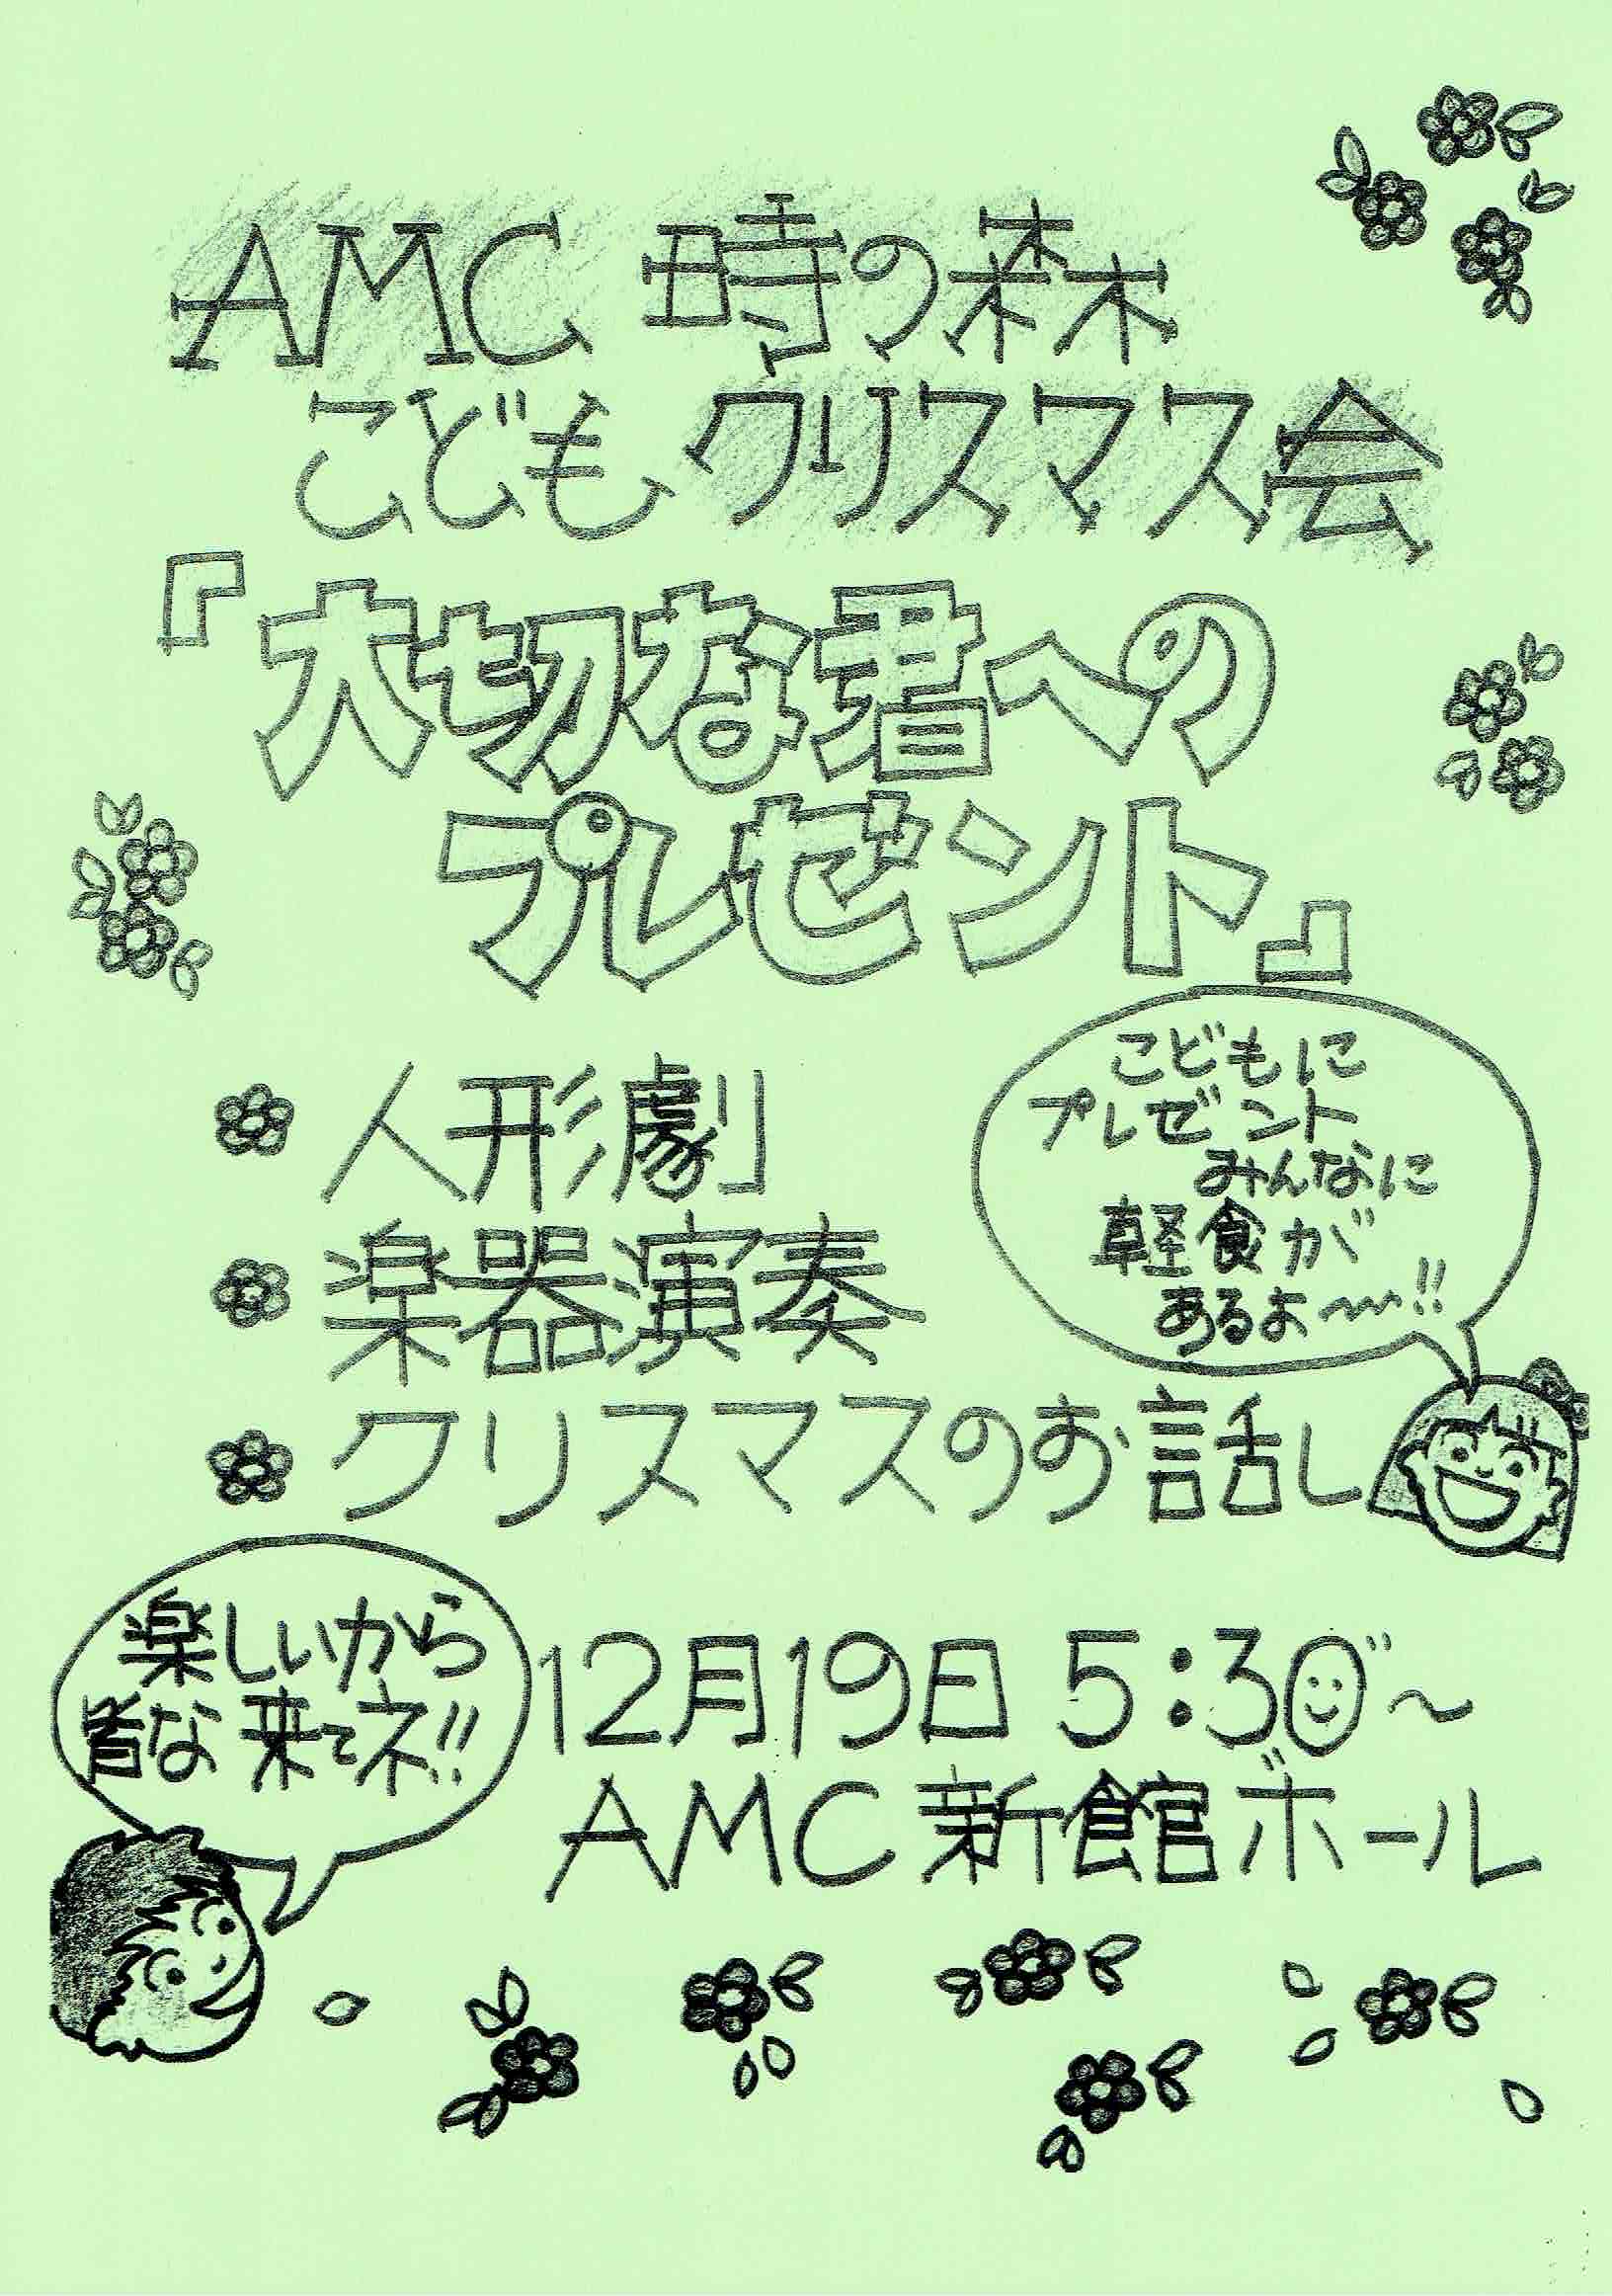 AMC 時の森
こどもクリスマス会
『大切な者への
プレゼント』
こどもに
プレゼント
みんなに
軽食が
あるよ〜!!
人形劇
楽器演奏
クリスマスのお話し
楽しいから
皆な来てネ!!
12月19日 5:30〜
AMC 新館ホール